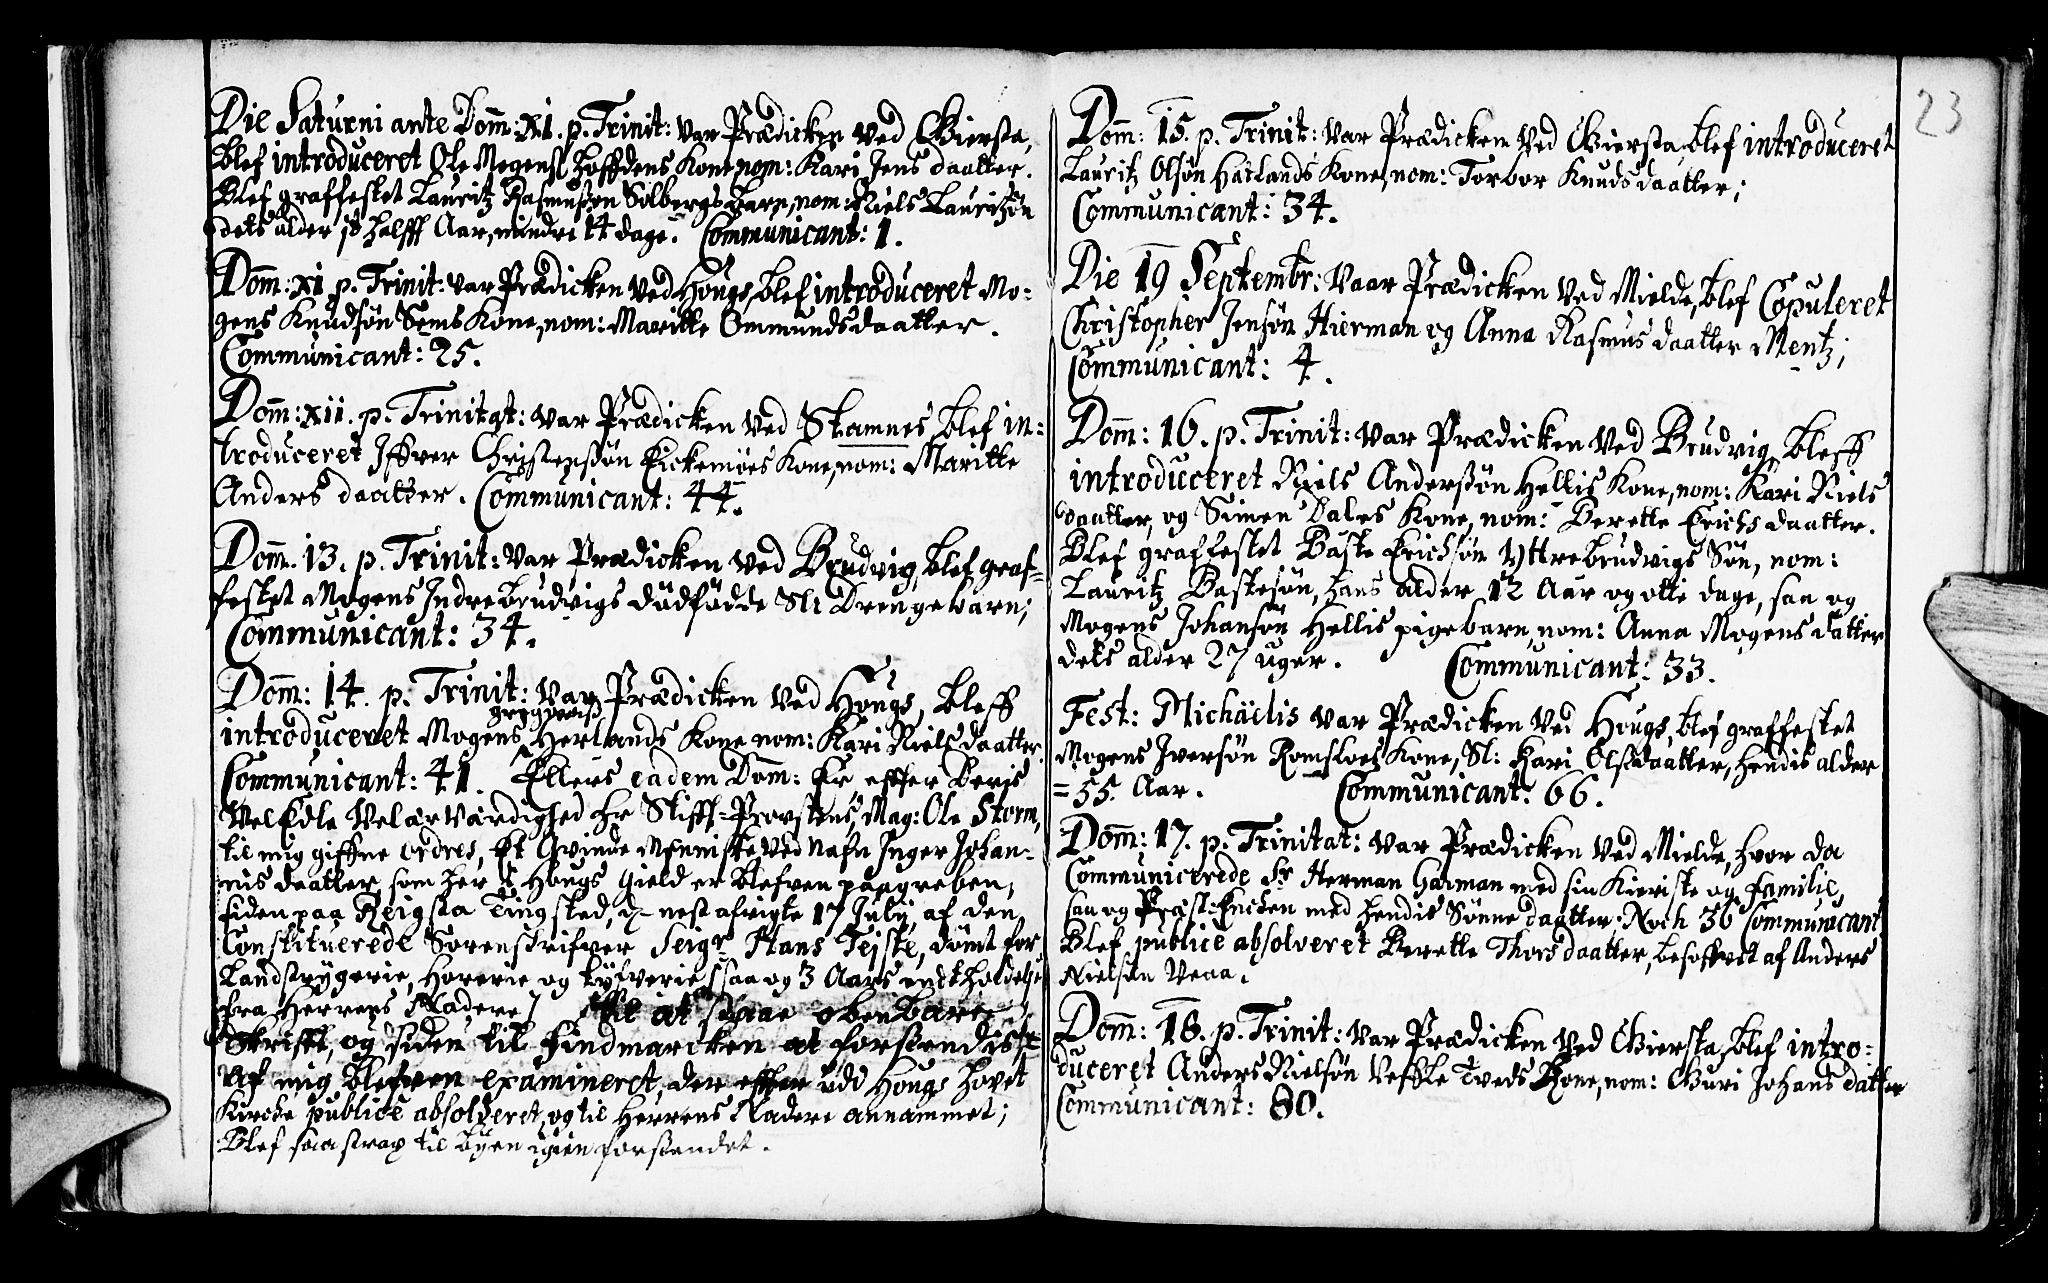 Die Saturni ante Dom̄: xi. p. Trinit: var Prædicken ved Giersta,
blef introduceret Ole Mogens Hoffdens Kone, nom: Kari Jens daatter.
Blef graffestet Lauritz Rasmusßøn Solbergs barn, nom: Niels Lauritzøn
dets alder halff Aar, mindre 14 dage. Communicant: 1.
Dom̄: xi p. Trinit: var Prædicken ved Hougs, blef introduceret Mo-
gens Knudsøn Sems Kone, nom: Maritte Ommundsdaatter.
Communicant: 25.
Dom̄: xii. p. Trinitat: var Prædicken ved Stamnes blef in-
troduceret Iffver Christensßøn Eickemoes Kone, nom: Maritte
Anders daatter. Communicant: 44.
Dom̄. 13. p. Trinit: var Prædicken ved Brudvig, blef graf-
festet Mogens Indrebrudvigs dødfødde Sl: Drengebarn;
Communicant: 34.
Dom̄: 14. p. Trinit: var Prædicken ved Hougs, bleff
introduceret Mogens Gregoriß Herlands Kone nom: Kari Nielsdaatter.
Communicant: 41. Ellers eadem Dom̄: Er effter Deris
VelEdle Velærværdighed Hr Stiffts-Provstens, Mag: Ole Storm,
til mig giffne ordres, Et Qvinde Menniske ved Nafn Inger Johan-
nis daatter som her i Hougs Gield er blefven paagreben,
siden paa Reigsta Tingsted, d. nest afvigte 17 July, af den
Constituerede Sorenskrifver Seigr Hans Tejste, dømt for
Landstrygerie, Horerie og tyfverie (saa og 3 Aars endtholdelse
fra Herrens Nadere) til at staae obenbare
Skrifft, og siden til Findmarcken at forsendis
Af mig blefven examineret, der effter udi Hougs Hovet
Kircke publicè absolveret, og til Herrens Nadere annammet;
Blef saa strax til Byen igien forsendet.
23
Dom̄: 15. p. Trinit: var Prædicken ved Giersta, blef introduceret
Lauritz Olsøn Hatlands Kone, nom: Torbor Knudsdaatter;
Communicant: 34.
Die 19 Septembr: Vaar Prædicken ved Mielde, blef Copuleret
Christopher Jensøn Hierman og Anna Rasmus daatter Mentz;
Communicant: 4.
Dom̄: 16. p. Trinit: var Prædicken ved Brudvig bleff
introduceret Niels Andersßøn Hellis Kone, nom: Kari Niels
daatter, og Simen Dales Kone, nom: Berette Erichs daatter.
Blef graffestet Baste Erichsøn Yttrebrudvigs Søn, nom:
Lauritz Bastesøn, hans alder 12 Aar og otte dage, saa og
Mogens Johansøn Hellis pigebarn, nom: Anna Mogens datter
dets alder 27 uger. Communicant: 33.
Fest: Michäelis var Prædicken ved Hougs, blef graffestet
Mogens Iversøn Romsloes Kone, Sl: Kari Olsdaatter, hendis alder
= 55 Aar. Communicant: 66.
Dom̄: 17. p. Trinitat: var Prædicken ved Mielde, hvor da
Communicerede Sr Herman Garman med sin Kieriste og familie,
saa og PræstEncken med hendis Sønne daatter: Noch 36 Communicant
Blef publicè absolveret Berette Thorsdaatter, besoffvet af Anders
Nielsøn Veaa.
Dom̄: 18. p. Trinit: var Prædicken ved Giersta, blef intro-
duceret Anders Nielsøn Veffle Tveds Kone, nom: Guri Johans datter
Communicant: 80.